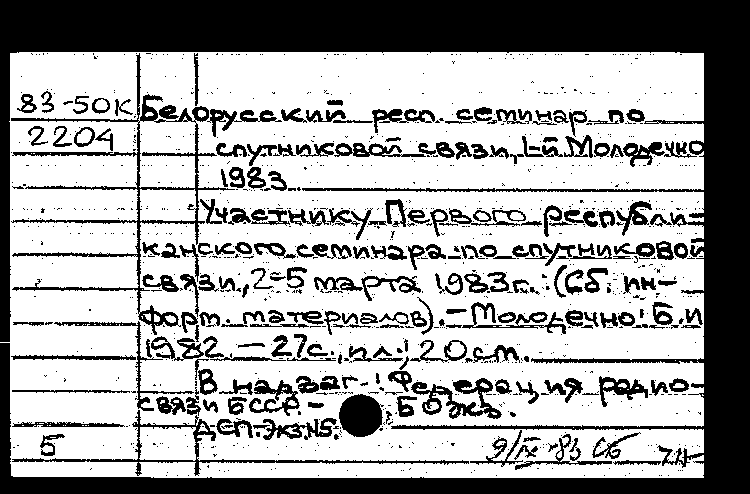 83-50К Белорусский респ. семинар по
2204 спутниковой связи, 1-й. Молодечно
1983
Участнику Первого республи-
канского семинара по спутниковой
связи, 2-5 марта 1983г.: (Сб. ин-
форм. материалов).-Молодечно: Б.и
1982. - 27с., ил.; 20см.
В надзаг.: Федерация радио-
связи БССР.- Б 0 экз.
ДСП. Экз. N5.
5 9/IX-83 Сб